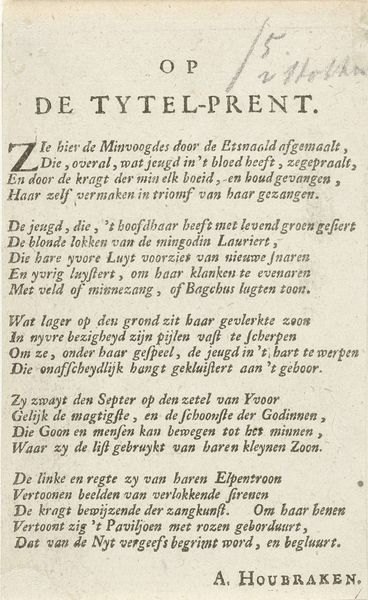 O P
DE TYTEL-PRENT.
ZIe hier de Minvoogdes door de Etsnaald afgemaalt,
Die, overal, wat jeugd in 't bloed heeft, zegepraalt,
En door de kragt der min elk boeid, en houd gevangen,
Haar zelf vermaken in triomf van haar gezangen.
De jeugd, die, 't hoofdhaar heeft met levend groen gesiert
De blonde lokken van de mingodin Lauriert,
Die hare yvore Luyt voorzies van nieuwe snaren
En yvrig luystert, om haar klanken te evenaren
Met veld of minnezang, of Bagchus lugten toon.
Wat lager op den grond zit haar gevlerkte zoon
In nyvre bezigheyd zijn pijlen vast te scherpen
Om ze, onder haar gespeel, de jeugd in 't hart te werpen
Die onafscheydlijk hangt gekluistert aan 't gehoor.
Zy zwayt den Septer op den zetel van Yvoor
Gelijk de magtigste, en de schoonste der Godinnen,
Die Goon en mensen kan bewegen tot het minnen,
Waar zy de list gebruykt van haren kleynen Zoon.
De linke en regte zy van haren Elpentroon
Vertoonen beelden van verlokkende sirenen
De kragt bewijzende der zangkunst. Om haar henen
Vertoont zig 't Paviljoen met rozen geborduurt,
Dat van de Nyt vergeefs begrimt word, en begluurt.
A. HOUBRAKEN.